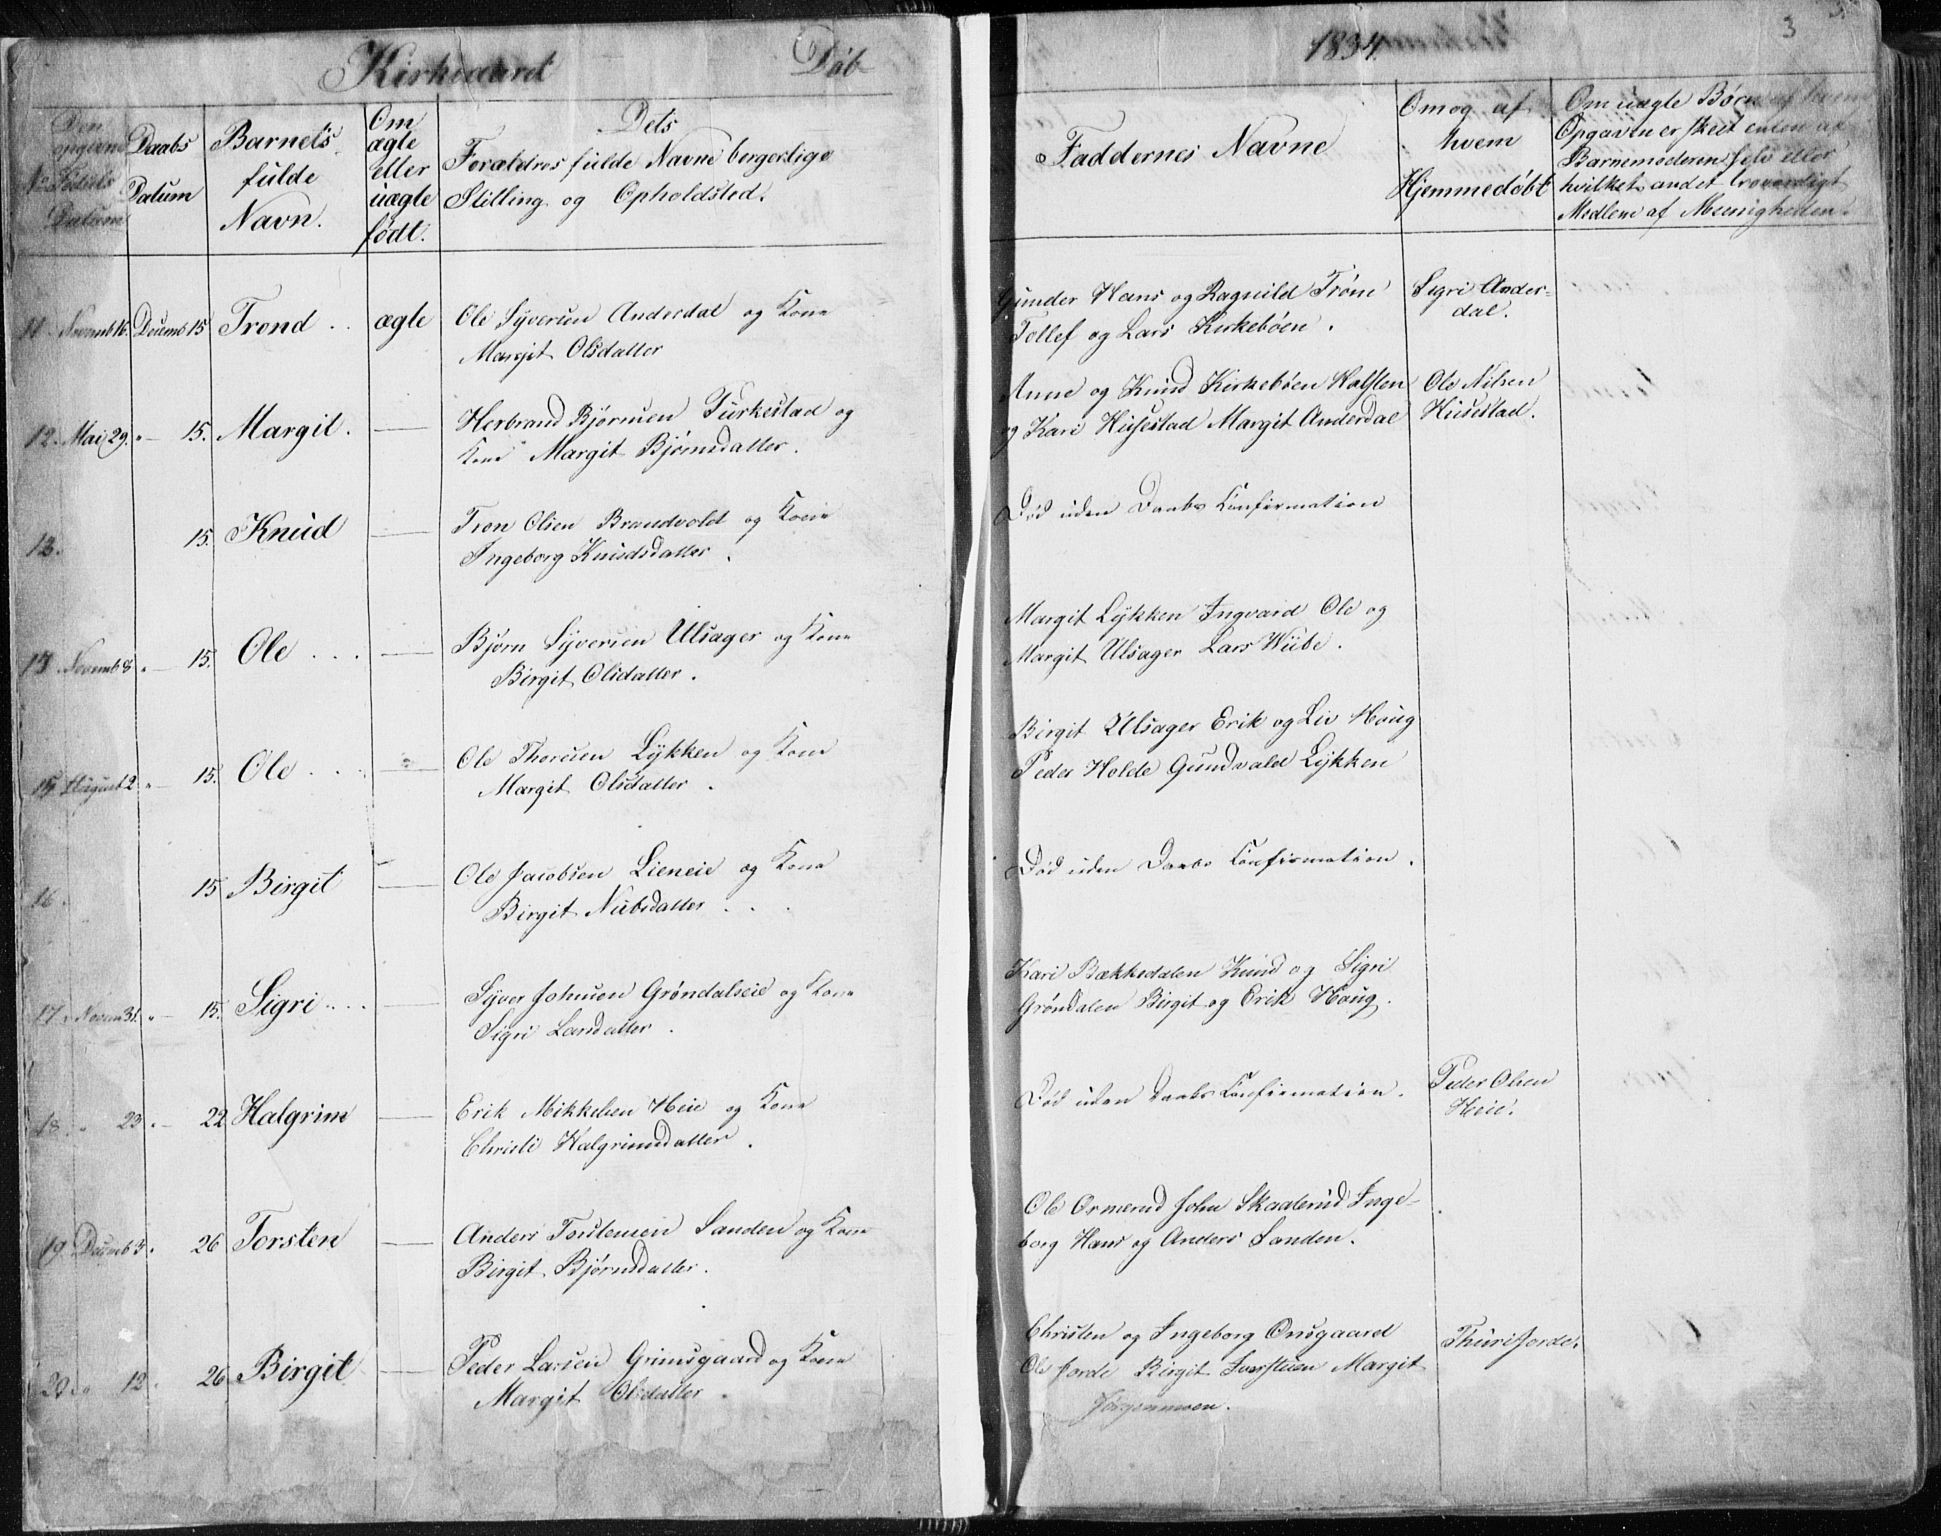 Kirkeaaret Døb
1834.
3
Den
opgivne
No. Fødsels
Datum
Daabs
Datum
Barnets
fulde
Navn.
Om
ægte
eller
uægte
født.
Dets
Forældres fulde Navne borgerlige
Stilling og Opholdsted.
Faddernes Navne
Om og af
hvem
Hjemmedøbt
Om uægte Børn af hvem
Opgaven er skeet enten af
Barnemoderen selv eller
hvilket andet troværdigt
Medlem af Menigheden.
11. Novemb 16. Decemb 15 Trond . . ægte
Ole Syversen Anderdal og Kone
Margit Olsdatter
Gunder Hans og Ragnild Trøne
Tollef og Lars Kirkebøen.
Sigri Ander-
dal.
12. Mai 29. " — 15. Margit. —
Herbrand Bjørnsen Turkestad og
Kone Margit Bjørnsdatter.
Anne og Knud Kirkebøen Halsten
og Kari Husestad Margit Anderdal
Ole Nilsen
Husestad.
13. 15. Knud —
Tron Olsen Brandvold og Kone
Ingeborg Knudsdatter.
Død uden Daabs Confirmation
Novemb 8. " — 15. Ole . . . —
Bjørn Syversen Ulsager og Kone
Birgit Olsdatter.
Margit Lykken Ingvard Ole og
Margit Ulsager Lars Wiibe.
15 August 2. " 15. Ole . . . —
Ole Thoresen Lykken og Kone
Margit Olsdatter.
Birgit Ulsager Erik og Liv Houg
Peder Holde Gundvald Lykken
16. 15 Birgit —
Ole Jacobsen Lieneie og Kone
Birgit Nubsdatter . . .
Død uden Daabs Confirmation.
17. Novem 31. " — 15. Sigri . . . —
Syver Johnson Grøndalseie og Kone
Sigri Larsdatter.
Kari Bækkedalen Knud og Sigri
Grøndalen Birgit og Erik Houg.
18. " 23. " — 22 Halgrim —
Erik Mikkelsen Heie og Kone
Christi Halgrimsdatter.
Død uden Daabs Confirmation.
Peder Olsen
Heie.
19. Decemb 3. 26 Torsten —
Anders Torstensen Sanden og Kone
Birgit Bjørnsdatter.
Ole Ormerud John Skaaderud Inge-
borg Hans og Anders Sanden.
20. " 12. 26 Birgit —
Peder Larsen Grimsgaard og Kone
Margit Olsdatter.
Christen og Ingeborg Onsgaard
Ole Jorde Birgit Iverstuen Margit
Jørgenmoen.
Thuri Jorde.